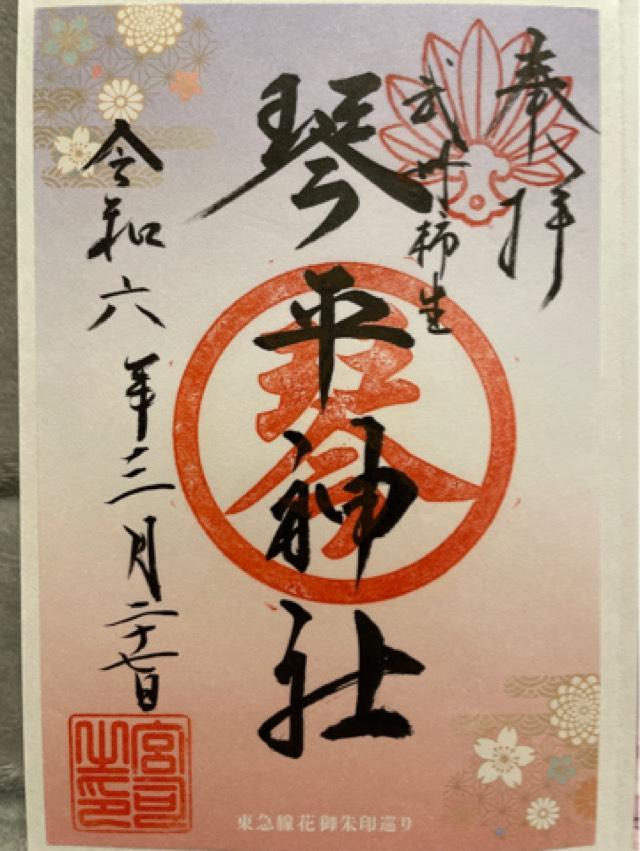 奉拝
武州柿生
琴平神社
令和六年三月二十七日
宮司之印
東急線花御朱印巡り